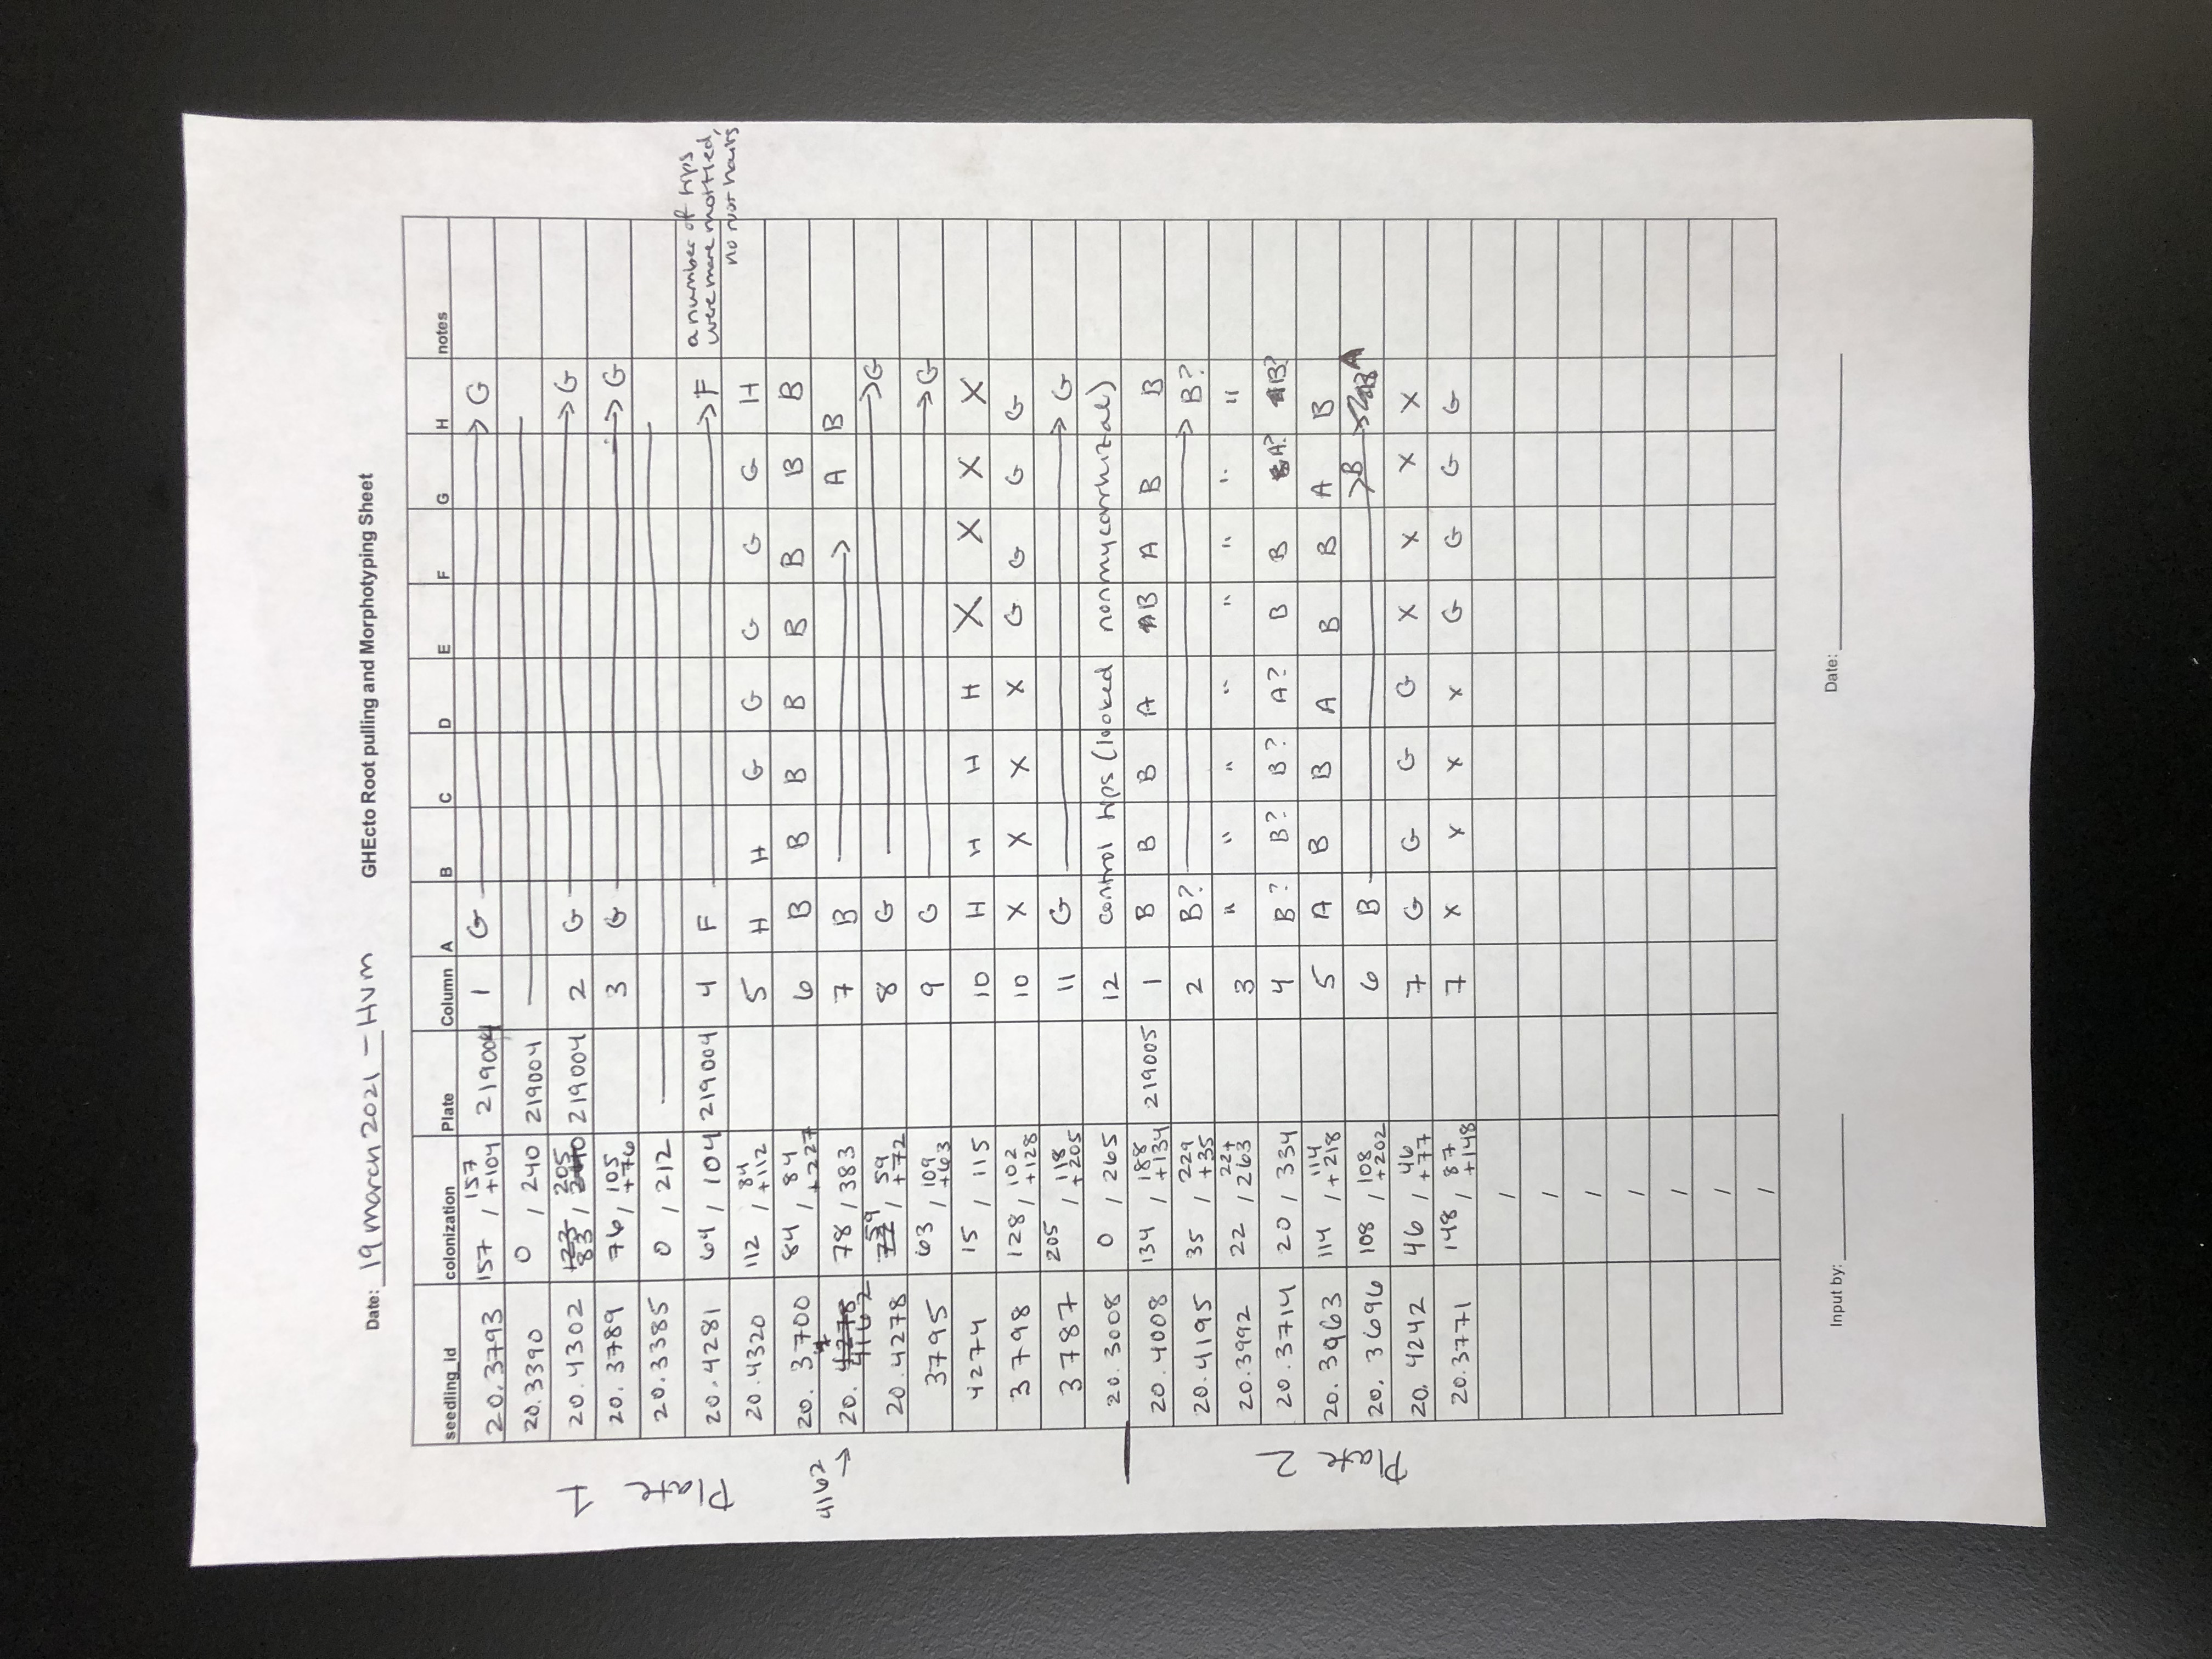 Date: 19 march 2021 - HVM GHEcto Root pulling and Morphotyping Sheet
seedling_id colonization Plate Column A B C D E F G H notes
Plate 1
20.3793 157 / 157 +104 219004 1 G → G
20.3390 0 / 240 219004
20.4302 123 83 / 205 240 219004 2 G → G
20.3789 76 / 105 +76 3 G → G
20.3385 0 / 212
20.4281 64 / 104 219004 4 F → F a number of tips
were more mottled,
no root hairs
20.4320 112 / 84 +112 5 H H G G G G G H
20.3700 84 / 84 +227 6 B B B B B B B B
4162 → 20. 4278 4162 78 / 383 7 B → A B
20.4278 72 59 / 59 +72 8 G → G
3795 63 / 109 +63 9 G → G
4274 15 / 115 10 H H H H X X X X
3798 128 / 102 +128 10 X X X X G G G G
3787 205 / 118 +205 11 G → G
20.3008 0 / 265 12 control tips (looked nonmycorrhizal)
Plate 2
20.4008 134 / 188 +134 219005 1 B B B A B A B B
20.4195 35 / 229 +35 2 B? → B?
20.3992 22 / 22+ 263 3 " " " " " " " "
20.3714 20 / 334 4 B? B? B? A? B B A? B?
20.3963 114 / 114 +218 5 A B B A B B A B
20.3696 108 / 108 +202 6 B → B A
20.4242 46 / 46 +77 7 G G G G X X X X
20.3771 148 / 87 +148 7 X X X X G G G G
/
/
/
/
/
/
/
Input by: Date: